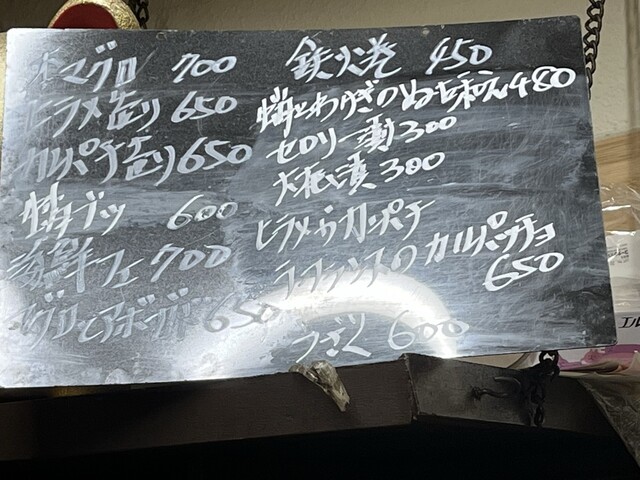 本マグロ 700
ヒラメ造り 650
カンパチ造り 650
蛸ブツ 600
海鮮フェ 700
マグロとアボカド 650
鉄火巻 450
蛸とわけぎのぬた和え 480
セロリ一漬 300
大根漬 300
ヒラメ カンパチ
のカルパッチョ
650
うざく 600
エル